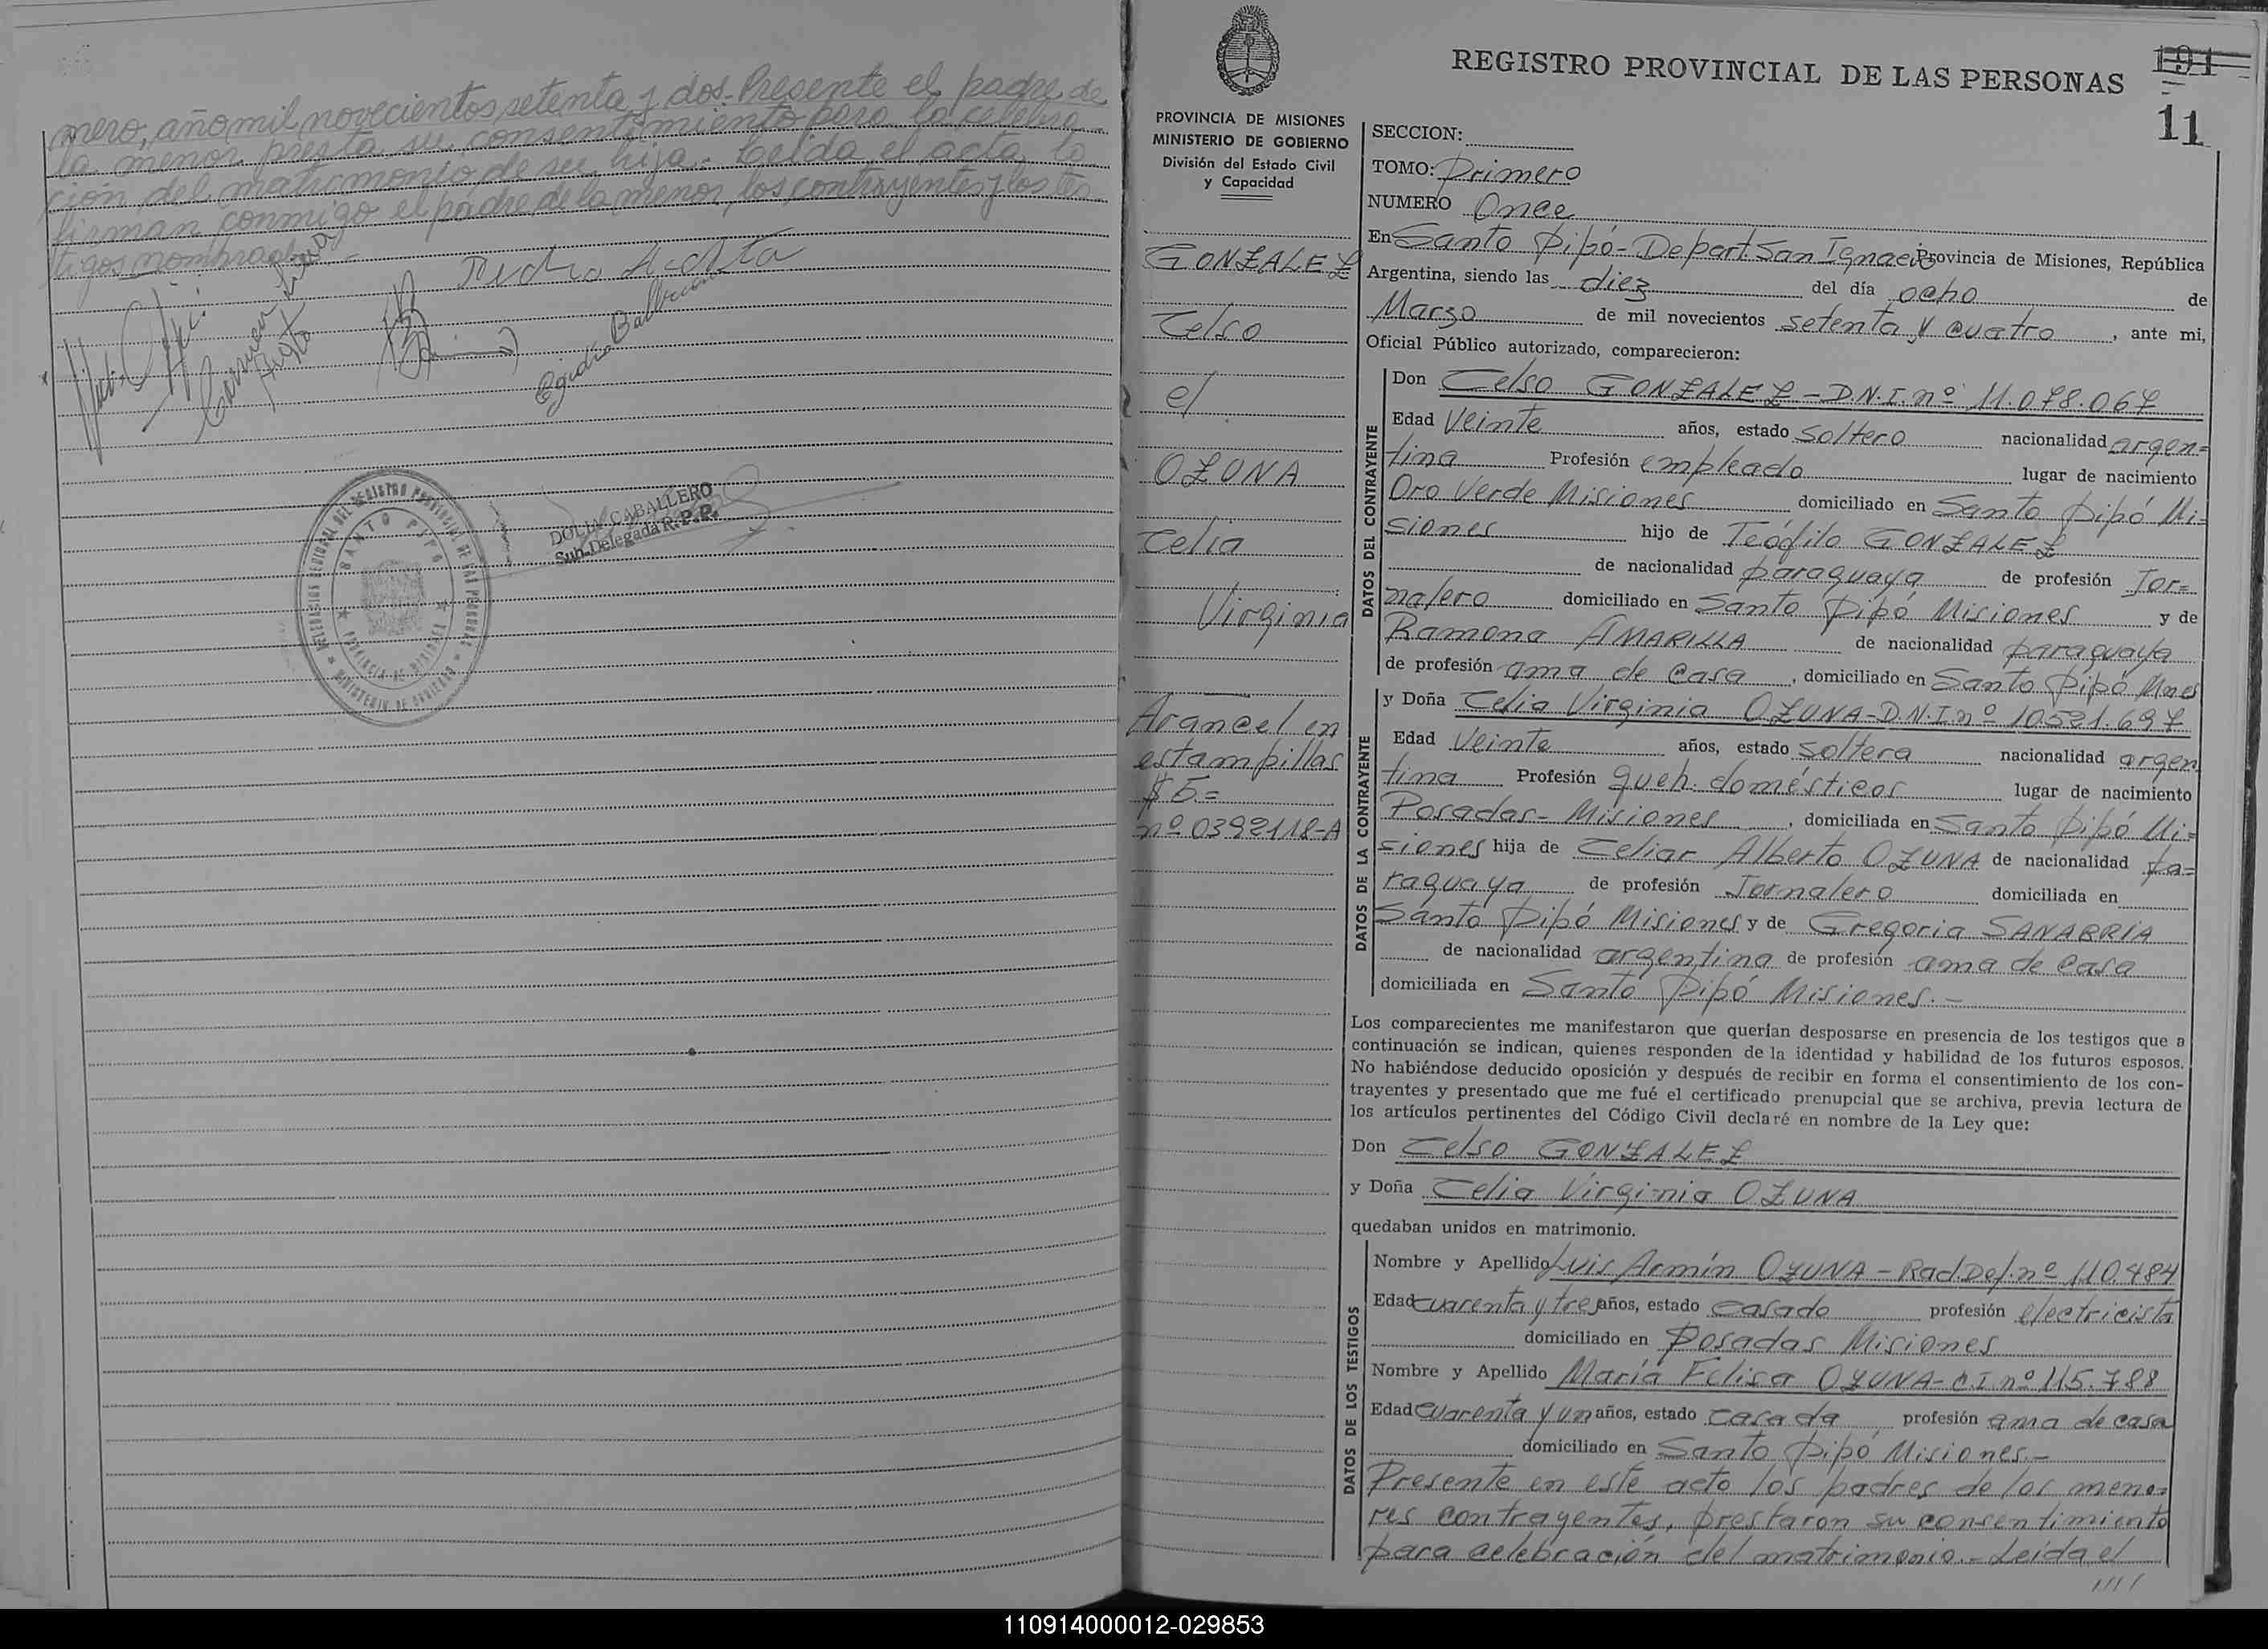 mero, año mil novecientos setenta y dos. Presente el padre de
la menor presta su consentimiento para la celebra-
ción del matrimonio de su hija. Leída el acta, la
firman conmigo el padre de la menor, los contrayentes y los tes-
tigos nombrados.-
Pedro Acosta
Carmen
Egidio
DELEGACION SECCIONAL DEL REGISTRO PROVINCIAL DE LAS PERSONAS
SANTO PIPO
PROVINCIA DE MISIONES
MINISTERIO DE GOBIERNO
DOLIA CABALLERO
Sub-Delegada R.P.P.
REGISTRO PROVINCIAL DE LAS PERSONAS
191
11
PROVINCIA DE MISIONES
MINISTERIO DE GOBIERNO
División del Estado Civil
y Capacidad
GONZALEZ
Celso
el
OZUNA
Celia
Virginia
Arancel en
estampillas
$ 5=
nº 0392118-A
SECCION:
TOMO: Primero
NUMERO Once
En Santo Pipó-Depart. San Ignacio Provincia de Misiones, República
Argentina, siendo las diez del día ocho de
Marzo de mil novecientos setenta y cuatro, ante mi,
Oficial Público autorizado, comparecieron:
DATOS DEL CONTRAYENTE
Don Celso GONZALEZ - D.N.I. nº 11.078.067
Edad Veinte años, estado soltero nacionalidad argen=
tina Profesión empleado lugar de nacimiento
Oro Verde Misiones domiciliado en Santo Pipó Mi=
siones hijo de Teófilo GONZALEZ
de nacionalidad paraguaya de profesión Jor=
nalero domiciliado en Santo Pipó Misiones y de
Ramona AMARILLA de nacionalidad paraguaya
de profesión ama de casa, domiciliado en Santo Pipó Mnes
DATOS DE LA CONTRAYENTE
y Doña Celia Virginia OZUNA-D.N.I. nº 10.521.697
Edad Veinte años, estado soltera nacionalidad argen
tina Profesión queh. domésticos lugar de nacimiento
Posadas-Misiones, domiciliada en Santo Pipó Mi=
siones hija de Celiar Alberto OZUNA de nacionalidad pa=
raguaya de profesión Jornalero domiciliada en
Santo Pipó Misiones y de Gregoria SANABRIA
de nacionalidad argentina de profesión ama de casa
domiciliada en Santo Pipó Misiones.-
Los comparecientes me manifestaron que querían desposarse en presencia de los testigos que a
continuación se indican, quienes responden de la identidad y habilidad de los futuros esposos.
No habiéndose deducido oposición y después de recibir en forma el consentimiento de los con-
trayentes y presentado que me fué el certificado prenupcial que se archiva, previa lectura de
los artículos pertinentes del Código Civil declaré en nombre de la Ley que:
Don Celso GONZALEZ
y Doña Celia Virginia OZUNA
quedaban unidos en matrimonio.
DATOS DE LOS TESTIGOS
Nombre y Apellido Luis Armín OZUNA - Rad. Def. nº 110.484
Edad cuarenta y tres años, estado casado profesión electricista
domiciliado en Posadas Misiones
Nombre y Apellido María Felisa OZUNA-C.I. nº 115.788
Edad cuarenta y un años, estado casada profesión ama de casa
domiciliado en Santo Pipó Misiones.-
Presente en este acto los padres de los meno=
res contrayentes, prestaron su consentimiento
para celebración del matrimonio.- Leída el
////
110914000012-029853